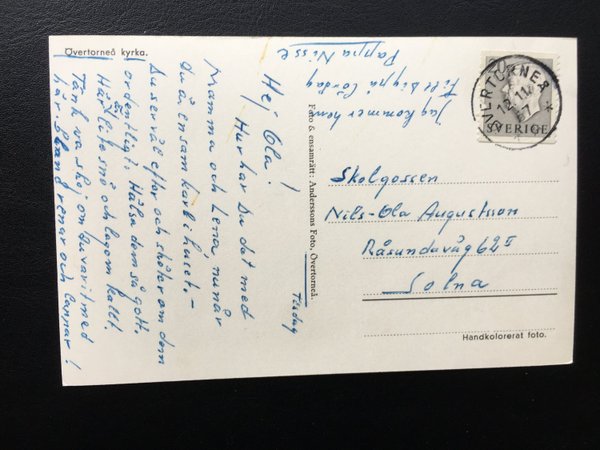 Övertorneå kyrka.
Tisdag
Hej Ola!
Hur har Du det med
Mamma och Lena, nu när
Du är ensam karl i huset, -
Du ser väl efter och sköter om dem
ordentligt. Hälsa dem så gott.
Här lite snö och lagom kallt.
Tänk va skoj om Du varit med
här bland renar och lappar!
Jag kommer hem
till Dig på Lördag
Pappa Nisse
Foto & ensamrätt: Anderssons Foto, Övertorneå.
ÖVERTORNEÅ
12.11.
57
SVERIGE
Skolgossen
Nils-Ola Augustsson
Råsundaväg 62 II
Solna
Handkolorerat foto.